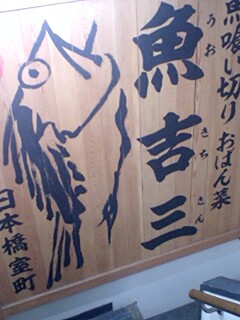 馬喰し切り おばん菜
魚吉三
うお きち さん
日本橋室町